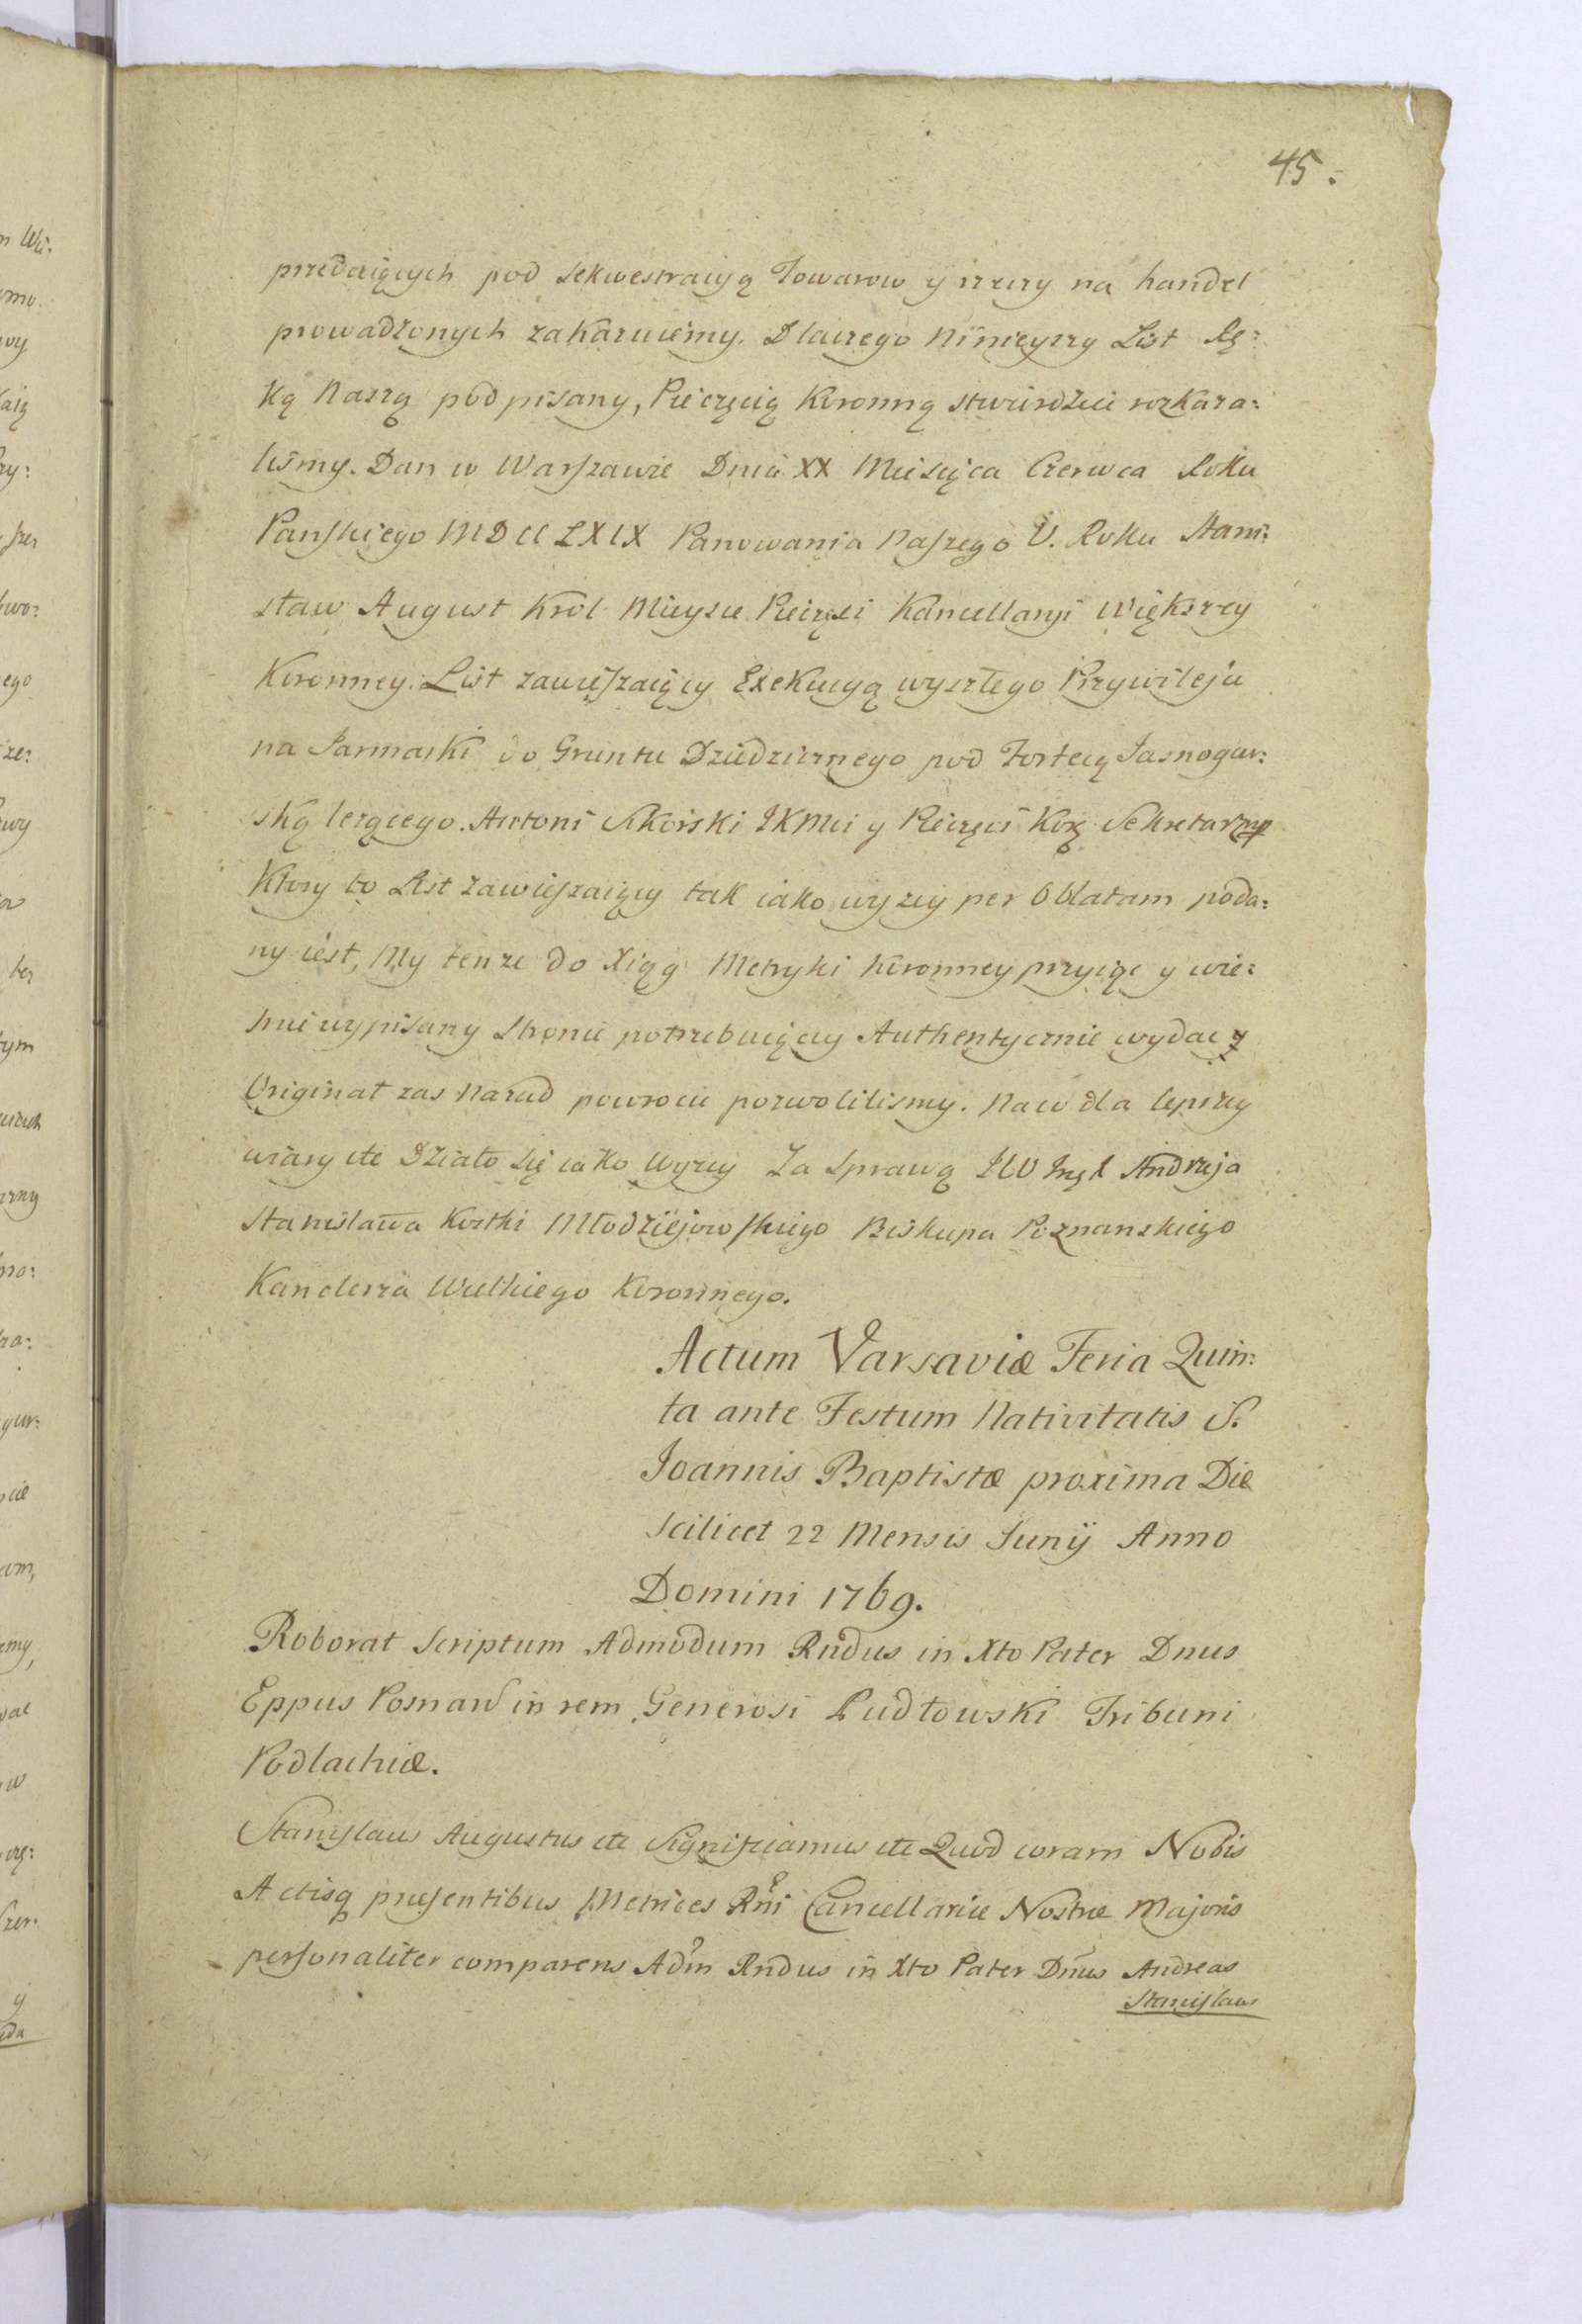 45.
przedaiących pod sekwestracyą Towarow y rzeczy na handel
prowadzonych zakazuiemy. Dlaczego Ninieyszy List Rę:
ką Naszą podpisany, Pieczęcią Koronną stwierdzić rozkaza:
lismy. Dan w Warszawie Dnia XX Miesiąca Czerwca Roku
Panskiego MDCCLXIX Panowania Naszego V. Roku Stani:
sław August Krol Mieysce Pieczęci Kancellaryi Większey
Koronney. List zawieszaiący Exekucyą wyszłego Przywileju
na Jarmarki do Gruntu Dziedzicznego pod Fortecą Jasnogur:
ską leżącego. Antoni Sikorski JKMci y Pieczęci Kor: Sekretarz mp
Ktory to List zawieszaiący tak iako wyzey per Oblatam poda:
ny iest, My tenze do Xiąg Metryki Koronney przyiąc y wie:
rnie wypisany Stronie potrzebuiącey Authentycznie wydac y
Originał zas nazad powrocic pozwolilismy. Na co dla lepszey
wiary etc Działo się iako wyzey Za Sprawą Andrzeja
Stanisława Kostki Młodziejowskiego Biskupa Poznanskiego
Kanclerza Wielkiego Koronnego.
Actum Varsaviæ Feria Quin:
ta ante Festum Nativitatis S.
Joannis Baptistæ proxima Die
Scilicet 22 Mensis Junij Anno
Domini 1769.
Roborat Scriptum Admodum Rndus in Xto Pater Dnus
Eppus Posnan in rem Generosi Pudłowski Tribuni
Podlachiæ.
Stanislaus Augustus etc Significamus etc Quod coram Nobis
Actisq presentibus Metrices Rni Cancellariæ Nostræ Majoris
personaliter comparens Adm Rndus in Xto Pater Dnus Andreas
Stanislaus